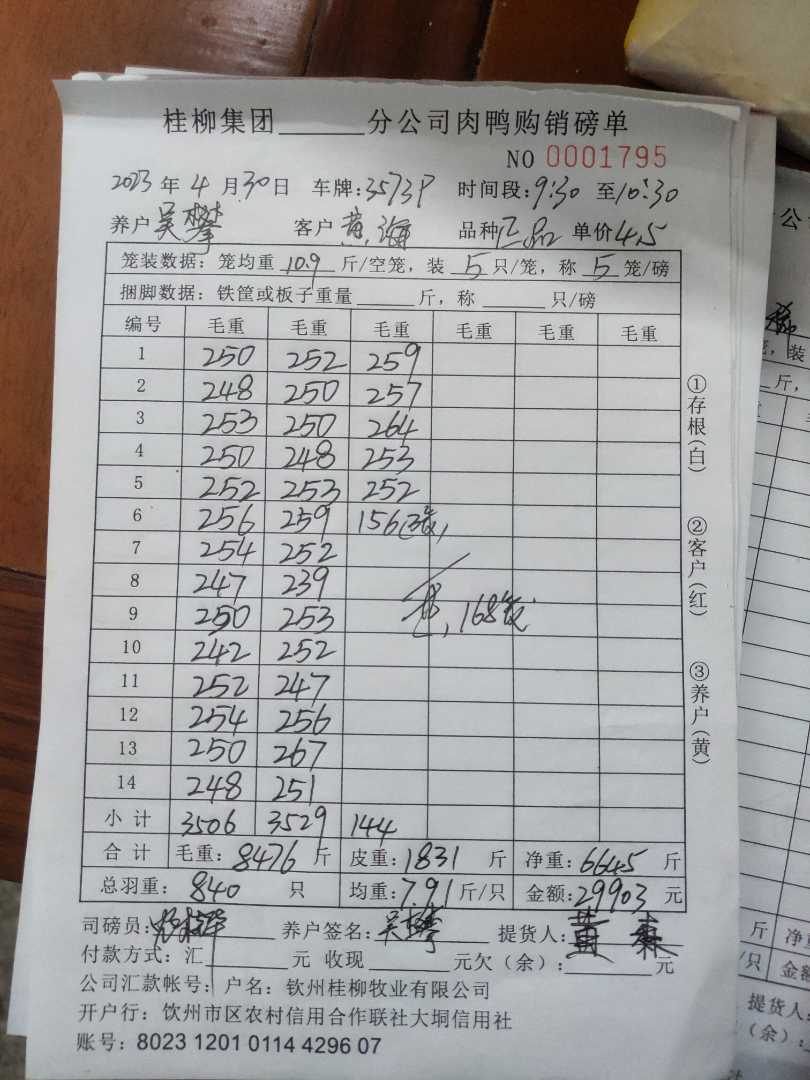 桂柳集团______分公司肉鸭购销磅单
NO 0001795
2023年4月30日 车牌:3573P 时间段:9:30至10:30
养户吴攀 客户黄海 品种正品 单价4.5
笼装数据：笼均重10.9斤/空笼，装5只/笼，称5笼/磅
捆脚数据：铁筐或板子重量______斤，称______只/磅
编号 毛重 毛重 毛重 毛重 毛重 毛重
1 250 252 259
2 248 250 257
3 253 250 264
4 250 248 253
5 252 253 252
6 256 259 156(3笼)
7 254 252
8 247 239
9 250 253 168笼
10 242 252
11 252 247
12 254 256
13 250 267
14 248 251
小计 3506 3529 144
合计 毛重:8476斤 皮重:1831斤 净重:6645斤
总羽重:840只 均重:7.91斤/只 金额:29903元
司磅员: 养户签名:吴攀 提货人:
付款方式:汇______元 收现______元欠（余）:______元
公司汇款帐号：户名：钦州桂柳牧业有限公司
开户行：饮州市区农村信用合作联社大垌信用社
账号：8023 1201 0114 4296 07
①存根(白)
②客户(红)
③养户(黄)
公
装
斤，
斤 净
/只 金额
提货人:
(余):